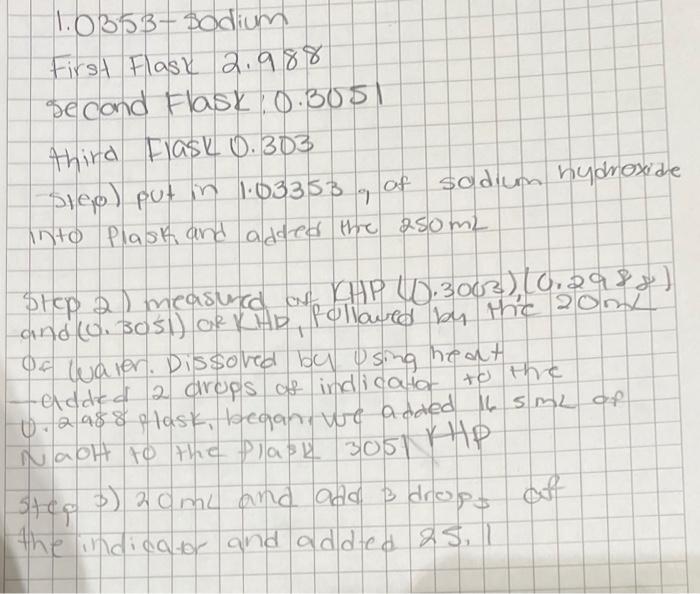 1.0353-Sodium
First Flask 2.988
Second Flask: 0.3051
third Flask 0.303
Step 1) put in 1.03353 g of sodium hydroxide
into Flask and added the 250mL
Step 2) measured of KHP (0.3003) (0.2988)
and (0.3051) of KHP, followed by the 20mL
of water. Dissolved by using heat
-added 2 drops of indicator to the
0.2988 flask, began, we added 16 5mL of
NaOH to the flask 3051 KHP
Step 3) 20mL and add 3 drops of
the indicator and added 25.1